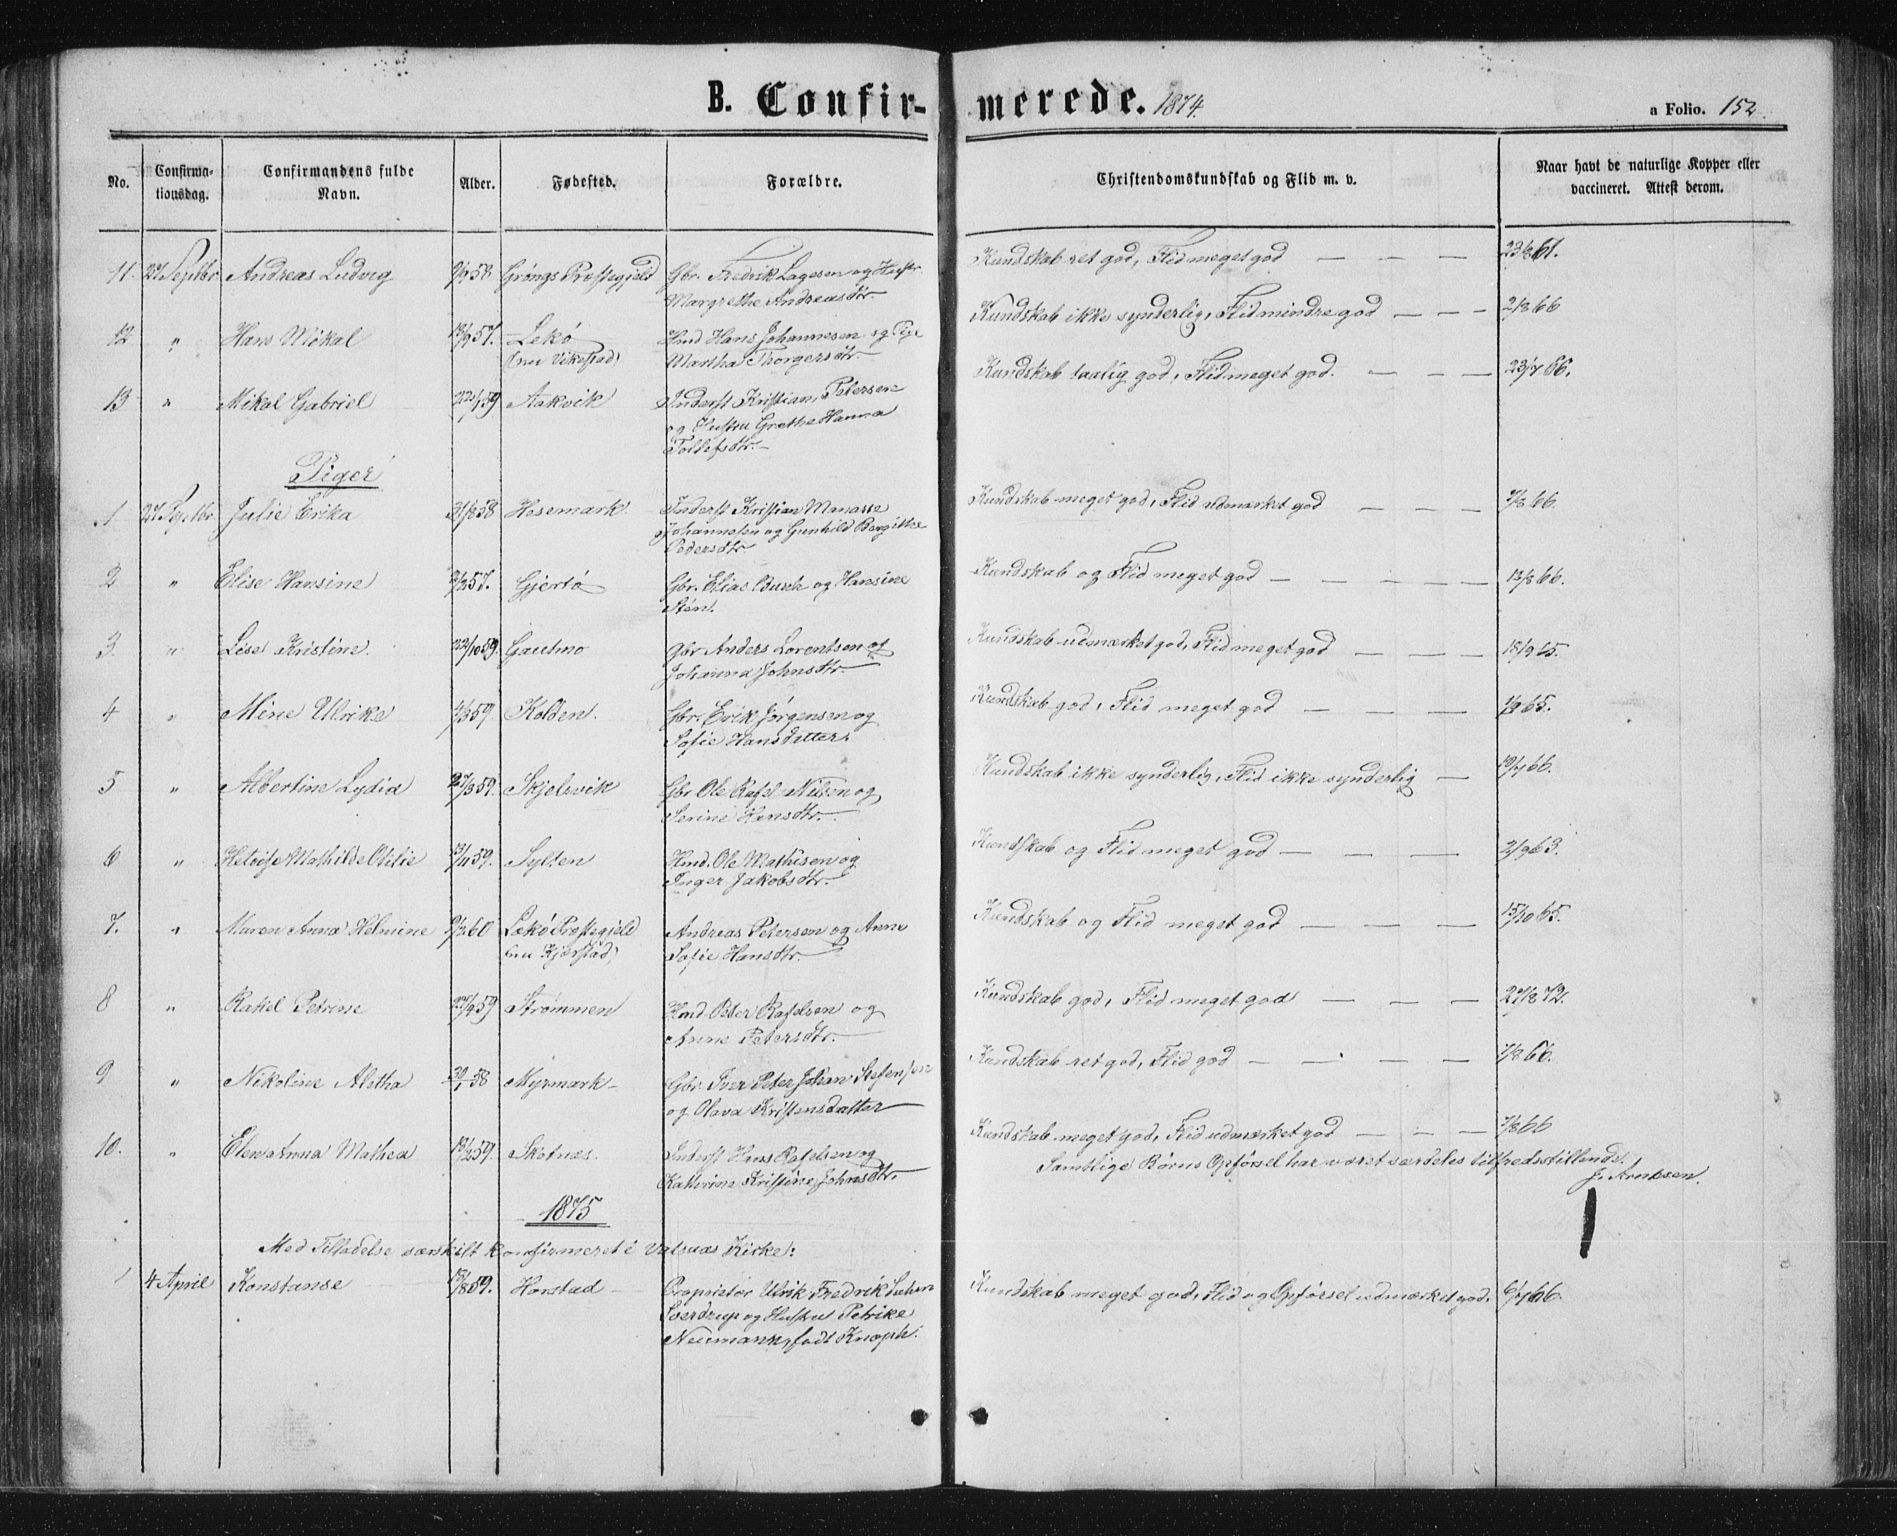 B. Confirmerede. 1874.
a Folio. 152
No.
Confirmationsdag.
Confirmandens fulde Navn.
Alder.
Fødested.
Forældre.
Christendomskundskab og Flid m. v.
Naar havt de naturlige Kopper eller vaccineret. Attest derom.
11. 27 Septbr Andreas Ludvig 58 Grongs Præstegjeld Gbr. Fredrik Lagesen og Hustr. Kundskab ret god, Flid meget god — — — 23/8 61.
Margrethe Andreasdtr.
12 " Hans Mikal 57. Lekø Hmd Hans Johannesen og Pige Kundskab ikke synderlig, Flid mindre god — — — 2/8 66
(nu Vikestad) Martha Thorgersdtr.
13 " Mikal Gabriel 22/1 59 Aakvik Inderst Kristian Petersen Kundskab taalig god, Flid meget god. — — — 23/7 66.
og Hustru Grethe Hanna
Tollefsdtr.
Piger
1 27 Septbr Julie Erika 58 Hosemark. Inderst Kristian Manasse Kundskab meget god, Flid udmærket god — — — 7/8 66.
Johannesen og Gunhild Bergitte
Pedersdtr.
2 " Elise Hansine 57. Gjertø Gbr. Elias Busch og Hansine Kundskab og Flid meget god — — — — 13/8 66.
Stén.
3 " Lise Kristine. 22/10 59. Gautmo Gbr Anders Lorentsen og Kundskab udmærket god, Flid meget god — — — 18/9 65.
Johanna Johnsdtr.
4 " Mine Ulrike 4/3 59 Kolden. Gbr. Erik Jørgensen og Kundskab god, Flid meget god — — — 65.
Sofie Hansdatter.
5 " Albertine Lydia 27/3 59. Skjelsvik Gbr Ole Rafel Nilsen og Kundskab ikke synderlig, Flid ikke synderlig — 19/7 66.
Serine Hansdtr.
6 " Mathilde 13/11 59. Sylten Hmd. Ole Mathisen og Kundskab og Flid meget god — — — 2/9 63.
Inger Jakobsdtr.
7. " Maren Anna Helmine 9/2 60 Lekø Præstegjeld Andreas Petersen og Anne Kundskab og Flid meget god — — — 15/10 65.
(nu Kjørstad) Sofie Hansdtr.
8 " Rakel Petrine 59 Strømmen Hmd. Peter Rafelsen og Kundskab god, Flid meget god — — — 27/8 72.
Anne Petersdtr.
9 " Nikoline Aletha 58 Myrmark Gbr Iver Peter Johan Stefensen Kundskab ret god, Flid god — — — — 7/8 66.
og Olava Kristensdatter
10. " Elen Anna Mathea 18/2 59. Skotnæs. Inderst Hans Rafelsen og Kundskab meget god, Flid udmærket god — — — 7/8 66
Katherine Kristine Johnsdtr.
Samtlige Børns Opførsel har været særdeles tilfredsstillende.
J. Arntsen.
1875
Med Tilladelse særskilt konfirmeret i Valsnæs Kirke:
1 4 April Konstanse 13/8 59. Horstad Proprietær Ulrik Fredrik Suhm Kundskab meget god, Flid og Opførsel udmærket god. 6/7 66.
Sverdrup og Hustru Petrike
Neumann, født Knoph.